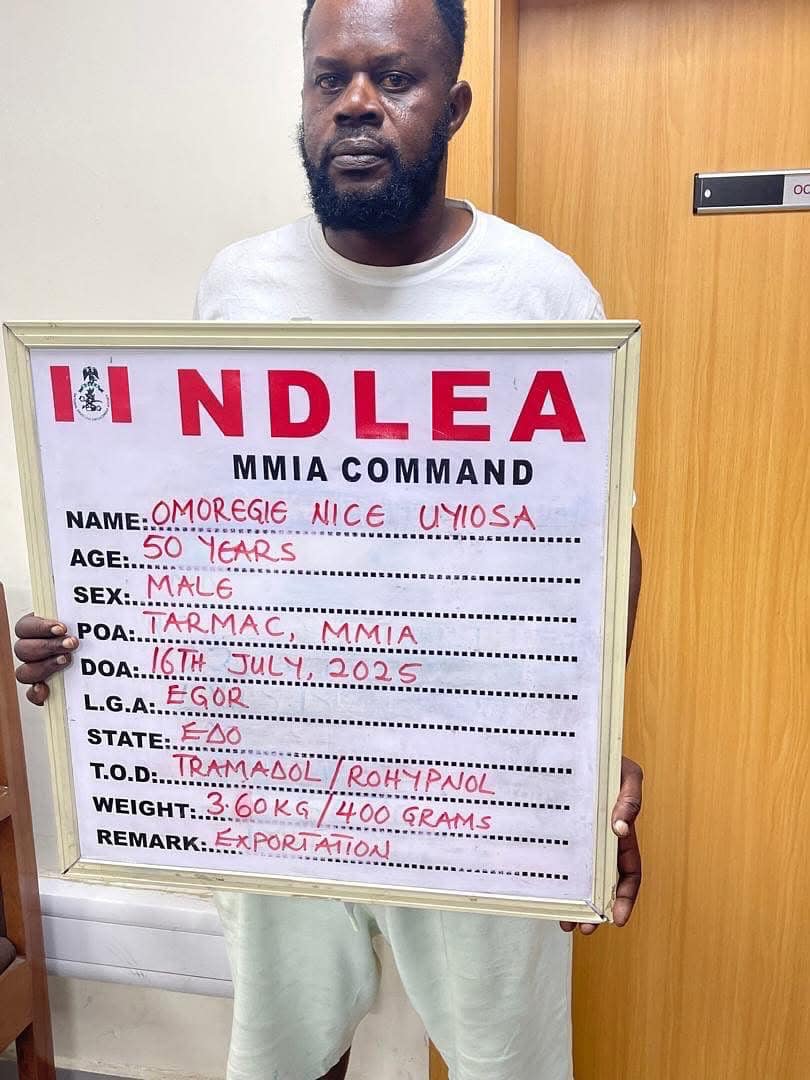 NDLEA
MMIA COMMAND
NAME: OMOREGIE NICE UYIOSA
AGE: 50 YEARS
SEX: MALE
POA: TARMAC, MMIA
DOA: 16TH JULY, 2025
L.G.A: EGOR
STATE: EDO
T.O.D: TRAMADOL/ROHYPNOL
WEIGHT: 3.60KG/400 GRAMS
REMARK: EXPORTATION